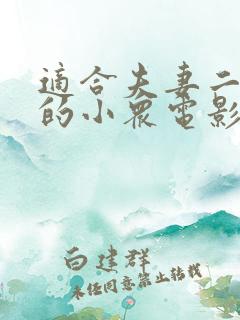 適合夫妻二
的小眾電影
白建群
未經同意禁止轉載